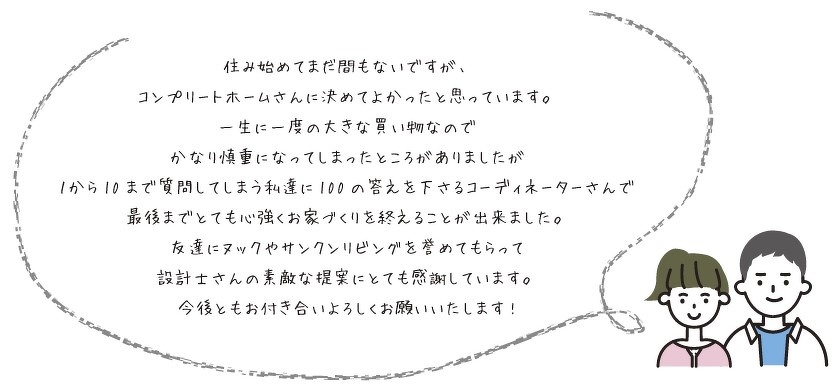 住み始めてまだ間もないですが、
コンプリートホームさんに決めてよかったと思っています。
一生に一度の大きな買い物なので
かなり慎重になってしまったところがありましたが
1から10まで質問してしまう私達に100の答えを下さるコーディネーターさんで
最後までとても心強くお家づくりを終えることが出来ました。
友達にヌックやサンクンリビングを誉めてもらって
設計士さんの素敵な提案にとても感謝しています。
今後ともお付き合いよろしくお願いいたします!